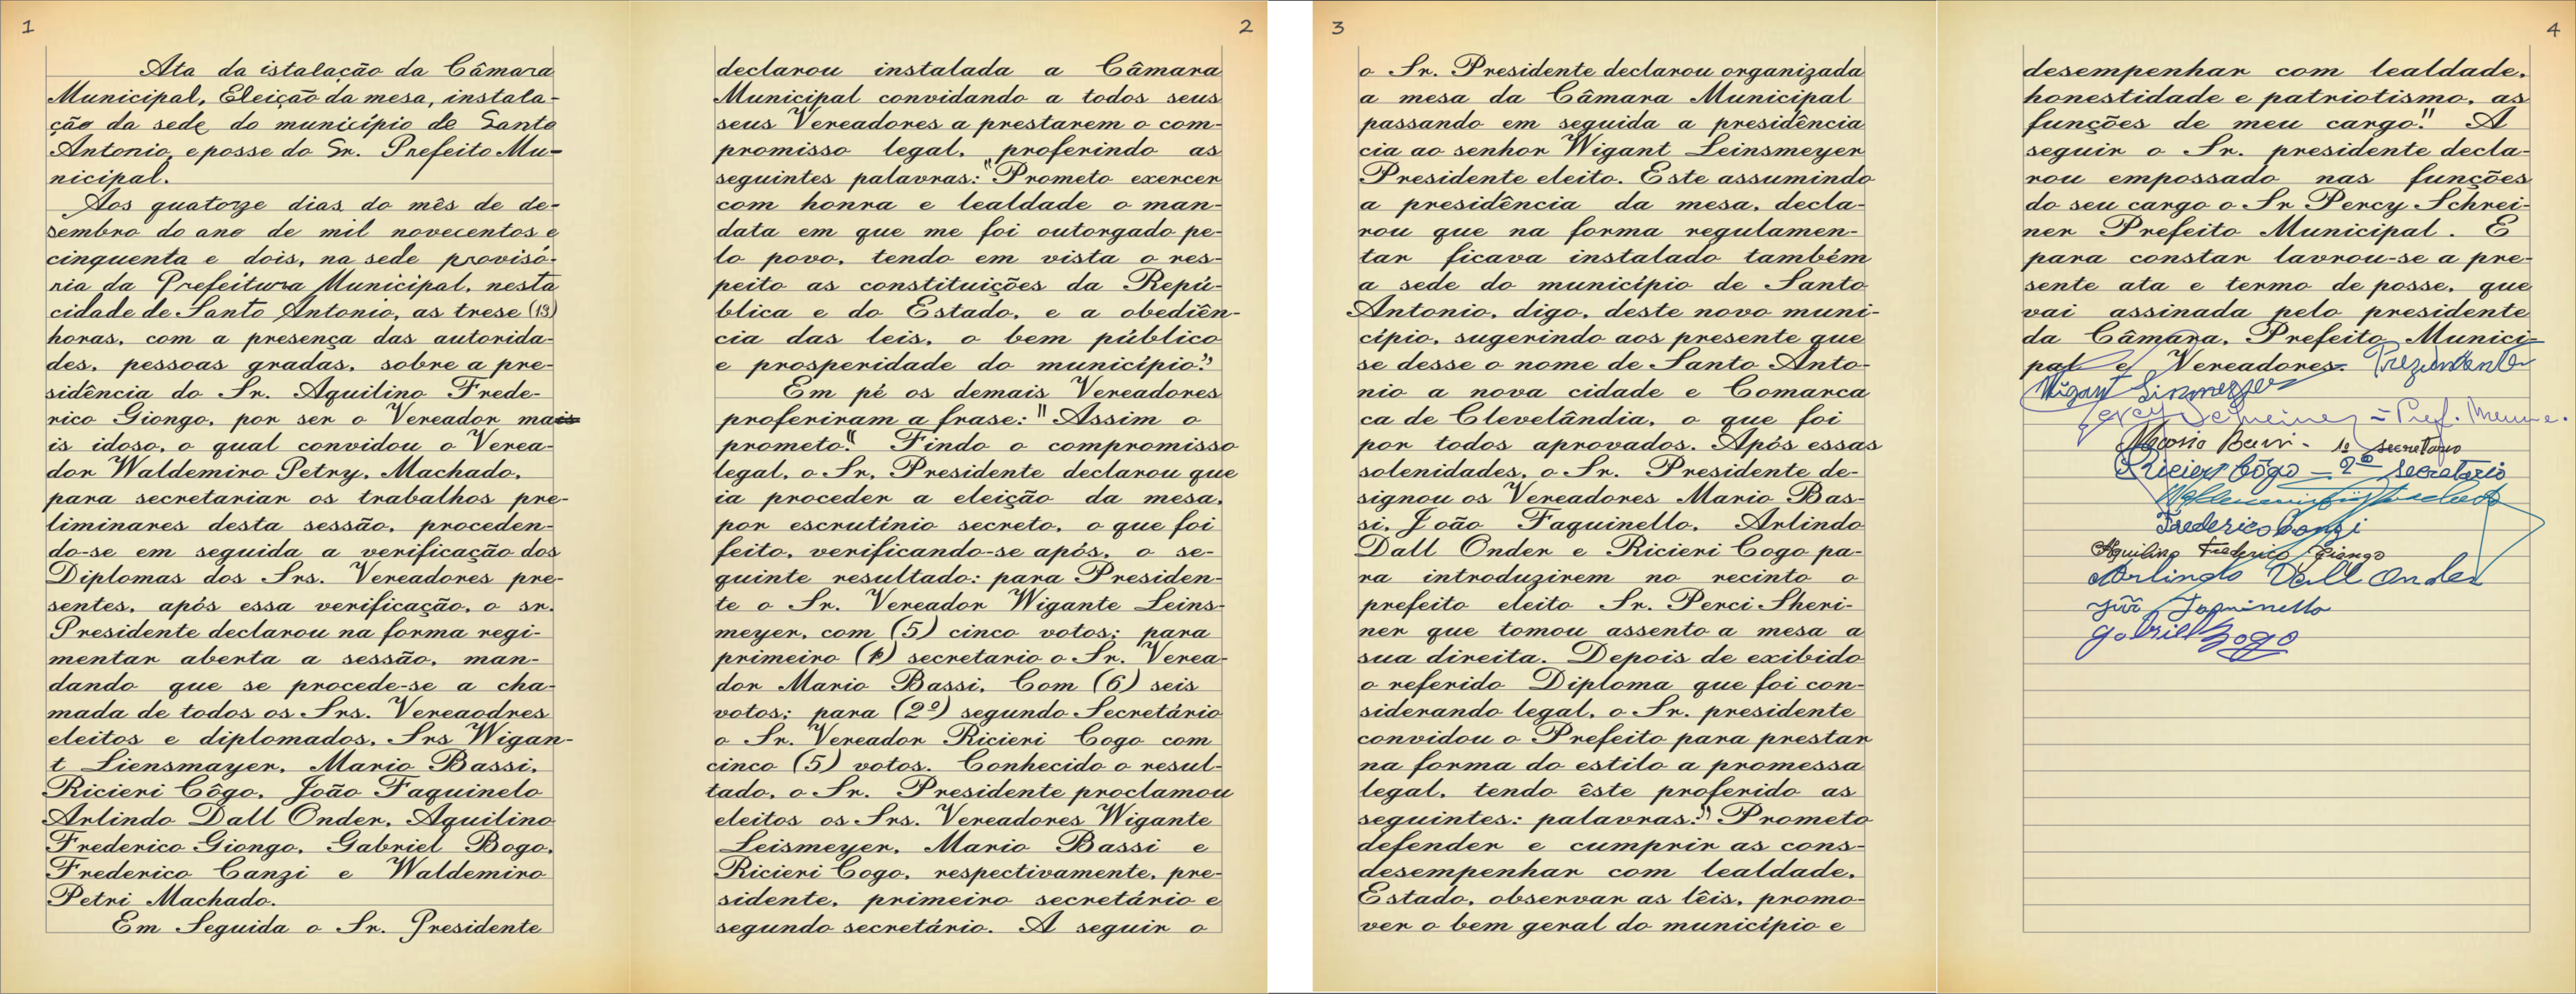 1
Ata da istalação da Câmara
Municipal, Eleição da mesa, instala-
ção da sede do município de Santo
Antonio, e posse do Sr. Prefeito Mu-
nicipal.
Aos quatorze dias do mês de de-
sembro do ano de mil novecentos e
cinquenta e dois, na sede provisó-
ria da Prefeitura Municipal, nesta
cidade de Santo Antonio, as trese (13)
horas, com a presença das autorida-
des, pessoas gradas, sobre a pre-
sidência do Sr. Aquilino Frede-
rico Giongo, por ser o Vereador mais
is idoso, o qual convidou o Verea-
dor Waldemiro Petry, Machado,
para secretariar os trabalhos pre-
liminares desta sessão, proceden-
do-se em seguida a verificação dos
Diplomas dos Srs. Vereadores pre-
sentes, após essa verificação, o sr.
Presidente declarou na forma regi-
mentar aberta a sessão, man-
dando que se procede-se a cha-
mada de todos os Srs. Vereaodres
eleitos e diplomados, Srs Wigan-
t Liensmayer, Mario Bassi,
Ricieri Côgo, João Faquinelo
Arlindo Dall Onder, Aquilino
Frederico Giongo, Gabriel Bogo,
Frederico Canzi e Waldemiro
Petri Machado.
Em Seguida o Sr. Presidente
2
declarou instalada a Câmara
Municipal convidando a todos seus
seus Vereadores a prestarem o com-
promisso legal, proferindo as
seguintes palavras: "Prometo exercer
com honra e lealdade o man-
data em que me foi outorgado pe-
lo povo, tendo em vista o res-
peito as constituições da Repú-
blica e do Estado, e a obediên-
cia das leis, o bem público
e prosperidade do município."
Em pé os demais Vereadores
proferiram a frase: " Assim o
prometo". Findo o compromisso
legal, o Sr. Presidente declarou que
ia proceder a eleição da mesa,
por escrutínio secreto, o que foi
feito, verificando-se após, o se-
guinte resultado: para Presiden-
te o Sr. Vereador Wigante Leins-
meyer, com (5) cinco votos; para
primeiro (1º) secretario o Sr. Verea-
dor Mario Bassi, Com (6) seis
votos; para (2º) segundo Secretário
o Sr. Vereador Ricieri Cogo com
cinco (5) votos. Conhecido o resul-
tado, o Sr. Presidente proclamou
eleitos os Srs. Vereadores Wigante
Leismeyer, Mario Bassi e
Ricieri Cogo, respectivamente, pre-
sidente, primeiro secretário e
segundo secretário. A seguir o
3
o Sr. Presidente declarou organizada
a mesa da Câmara Municipal
passando em seguida a presidência
cia ao senhor Wigant Leinsmeyer
Presidente eleito. Este assumindo
a presidência da mesa, decla-
rou que na forma regulamen-
tar ficava instalado também
a sede do município de Santo
Antonio, digo, deste novo muni-
cípio, sugerindo aos presente que
se desse o nome de Santo Anto-
nio a nova cidade e Comarca
ca de Clevelândia, o que foi
por todos aprovados. Após essas
solenidades, o Sr. Presidente de-
signou os Vereadores Mario Bas-
si, João Faquinello, Arlindo
Dall Onder e Ricieri Cogo pa-
ra introduzirem no recinto o
prefeito eleito Sr. Perci Sheri-
ner que tomou assento a mesa a
sua direita. Depois de exibido
o referido Diploma que foi con-
siderando legal, o Sr. presidente
convidou o Prefeito para prestar
na forma do estilo a promessa
legal, tendo êste proferido as
seguintes: palavras:" Prometo
defender e cumprir as cons-
desempenhar com lealdade,
Estado, observar as lêis, promo-
ver o bem geral do município e
4
desempenhar com lealdade,
honestidade e patriotismo, as
funções de meu cargo." A
seguir o Sr. presidente decla-
rou empossado nas funções
do seu cargo o Sr Percy Schrei-
ner Prefeito Municipal. E
para constar lavrou-se a pre-
sente ata e termo de posse, que
vai assinada pelo presidente
da Câmara, Prefeito Munici-
pal e Vereadores.
Percy Schreiner = Pref.
1º secretario
Ricieri Côgo - 2º secretario
Frederico Canzi
Aquilino Frederico Giongo
Arlindo Dall Onder
João Faquinello
Gabriel Bogo